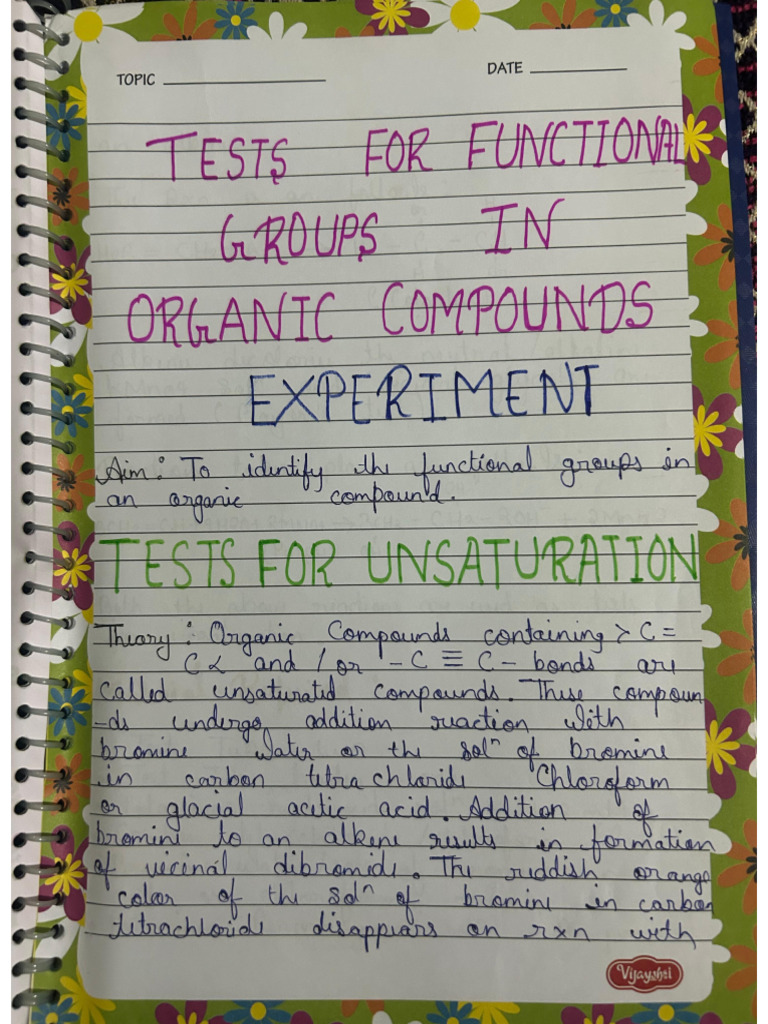 TOPIC
DATE
TESTS FOR FUNCTIONAL
GROUPS IN
ORGANIC COMPOUNDS
EXPERIMENT
Aim: To identify the functional groups in
an organic compound.
TESTS FOR UNSATURATION
Theory: Organic Compounds containing >C=
C< and / or -C≡C- bonds are
called unsaturated compounds. These compoun
-ds undergo addition reaction with
bromine water or the solⁿ of bromine
in carbon tetrachloride Chloroform
or glacial acetic acid. Addition of
bromine to an alkene results in formation
of vicinal dibromide. The reddish orange
color of the solⁿ of bromine in carbon
tetrachloride disappears on rxn with
Vijayshri